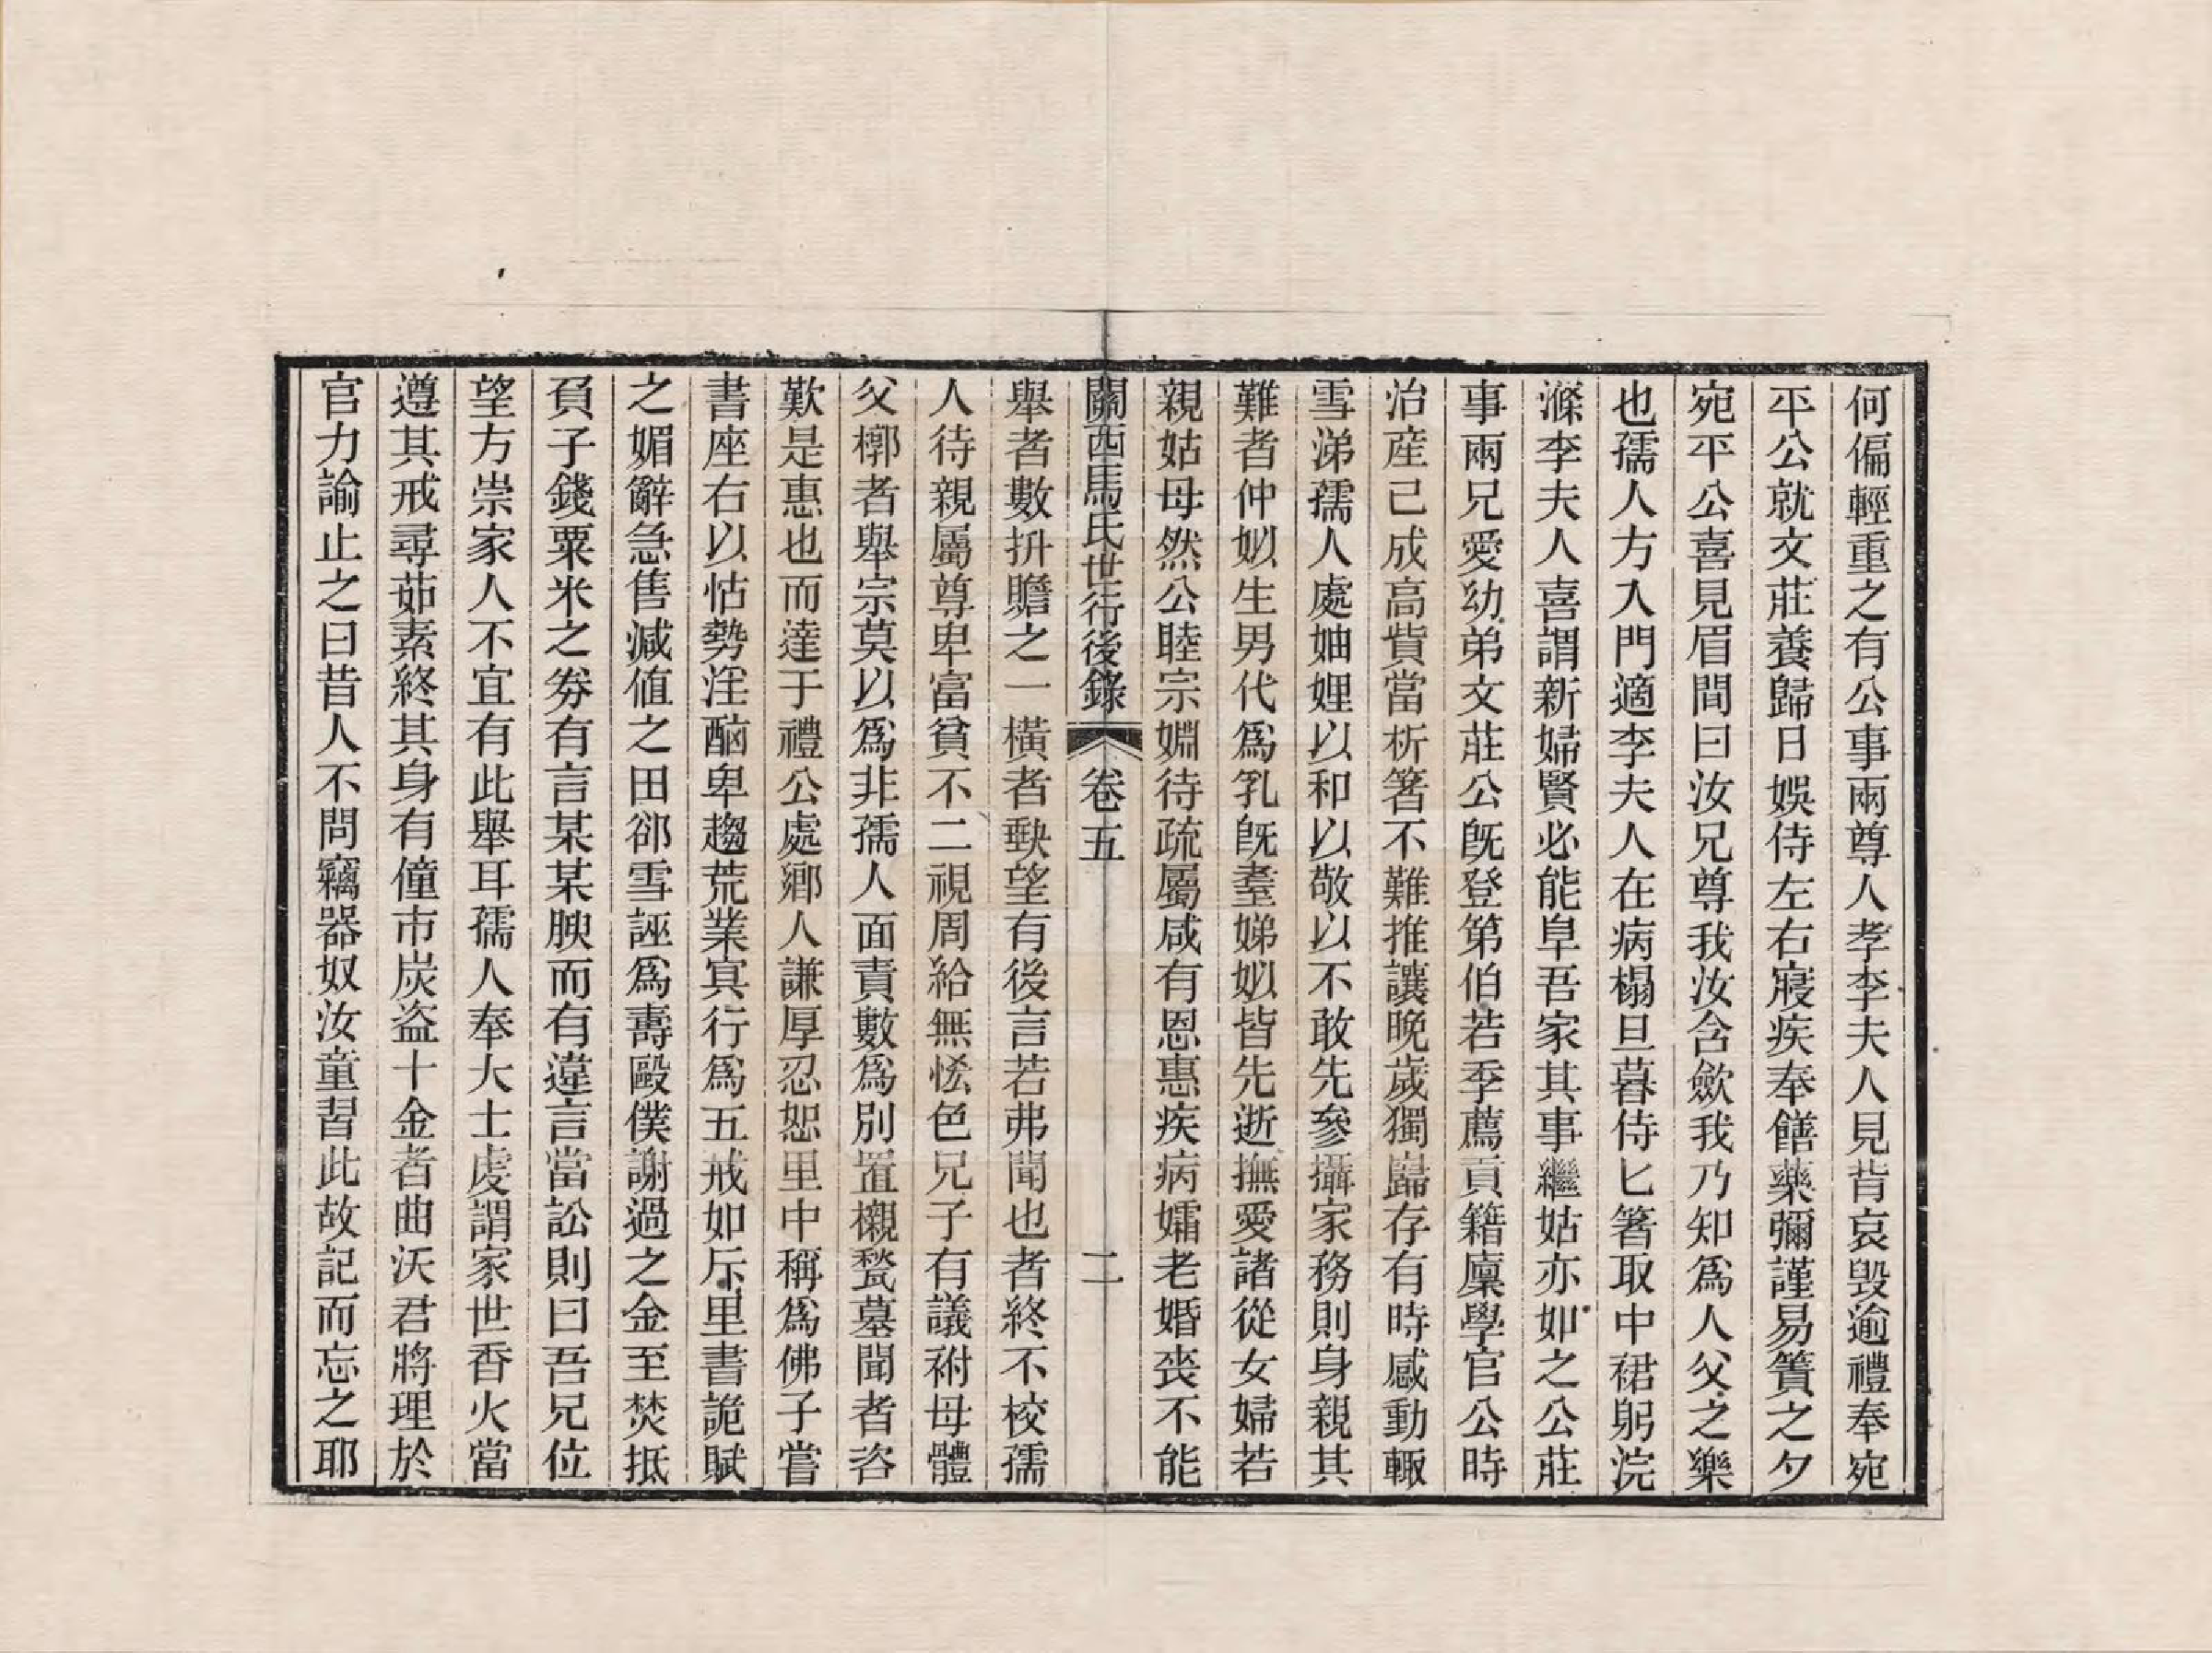 何偏輕重之有公事兩尊人孝李夫人見背哀毀逾禮奉宛
平公就文莊養歸日娛侍左右寢疾奉饍藥彌謹易簀之夕
宛平公喜見眉間曰汝兄尊我汝含歛我乃知爲人父之樂
也孺人方入門適李夫人在病榻旦暮侍匕箸取中裙躬浣
滌李夫人喜謂新婦賢必能阜吾家其事繼姑亦如之公莊
事兩兄愛幼弟文莊公旣登第伯若季薦貢籍廩學官公時
治産已成高貲當析箸不難推讓晩歲獨歸存有時感動輙
雪涕孺人處妯娌以和以敬以不敢先參攝家務則身親其
難者仲姒生男代爲乳旣耋娣姒皆先逝撫愛諸從女婦若
親姑母然公睦宗婣待疏屬咸有恩惠疾病孀老婚喪不能
關西馬氏世行後錄 卷五 二
舉者數抍贍之一橫者軮望有後言若弗聞也者終不校孺
人待親屬尊卑富貧不二視周給無恡色兄子有議祔母體
父槨者舉宗莫以爲非孺人面責數爲別置櫬甃墓聞者咨
歎是惠也而達于禮公處鄉人謙厚忍恕里中稱爲佛子嘗
書座右以怙勢淫酗卑趨荒業冥行爲五戒如斥里書詭賦
之媚辭急售減値之田郤雪誣爲壽毆僕謝過之金至焚抵
負子錢粟米之劵有言某某腴而有違言當訟則曰吾兄位
望方崇家人不宜有此舉耳孺人奉大士虔謂家世香火當
遵其戒尋茹素終其身有僮市炭盜十金者曲沃君將理於
官力諭止之曰昔人不問竊器奴汝童習此故記而忘之耶